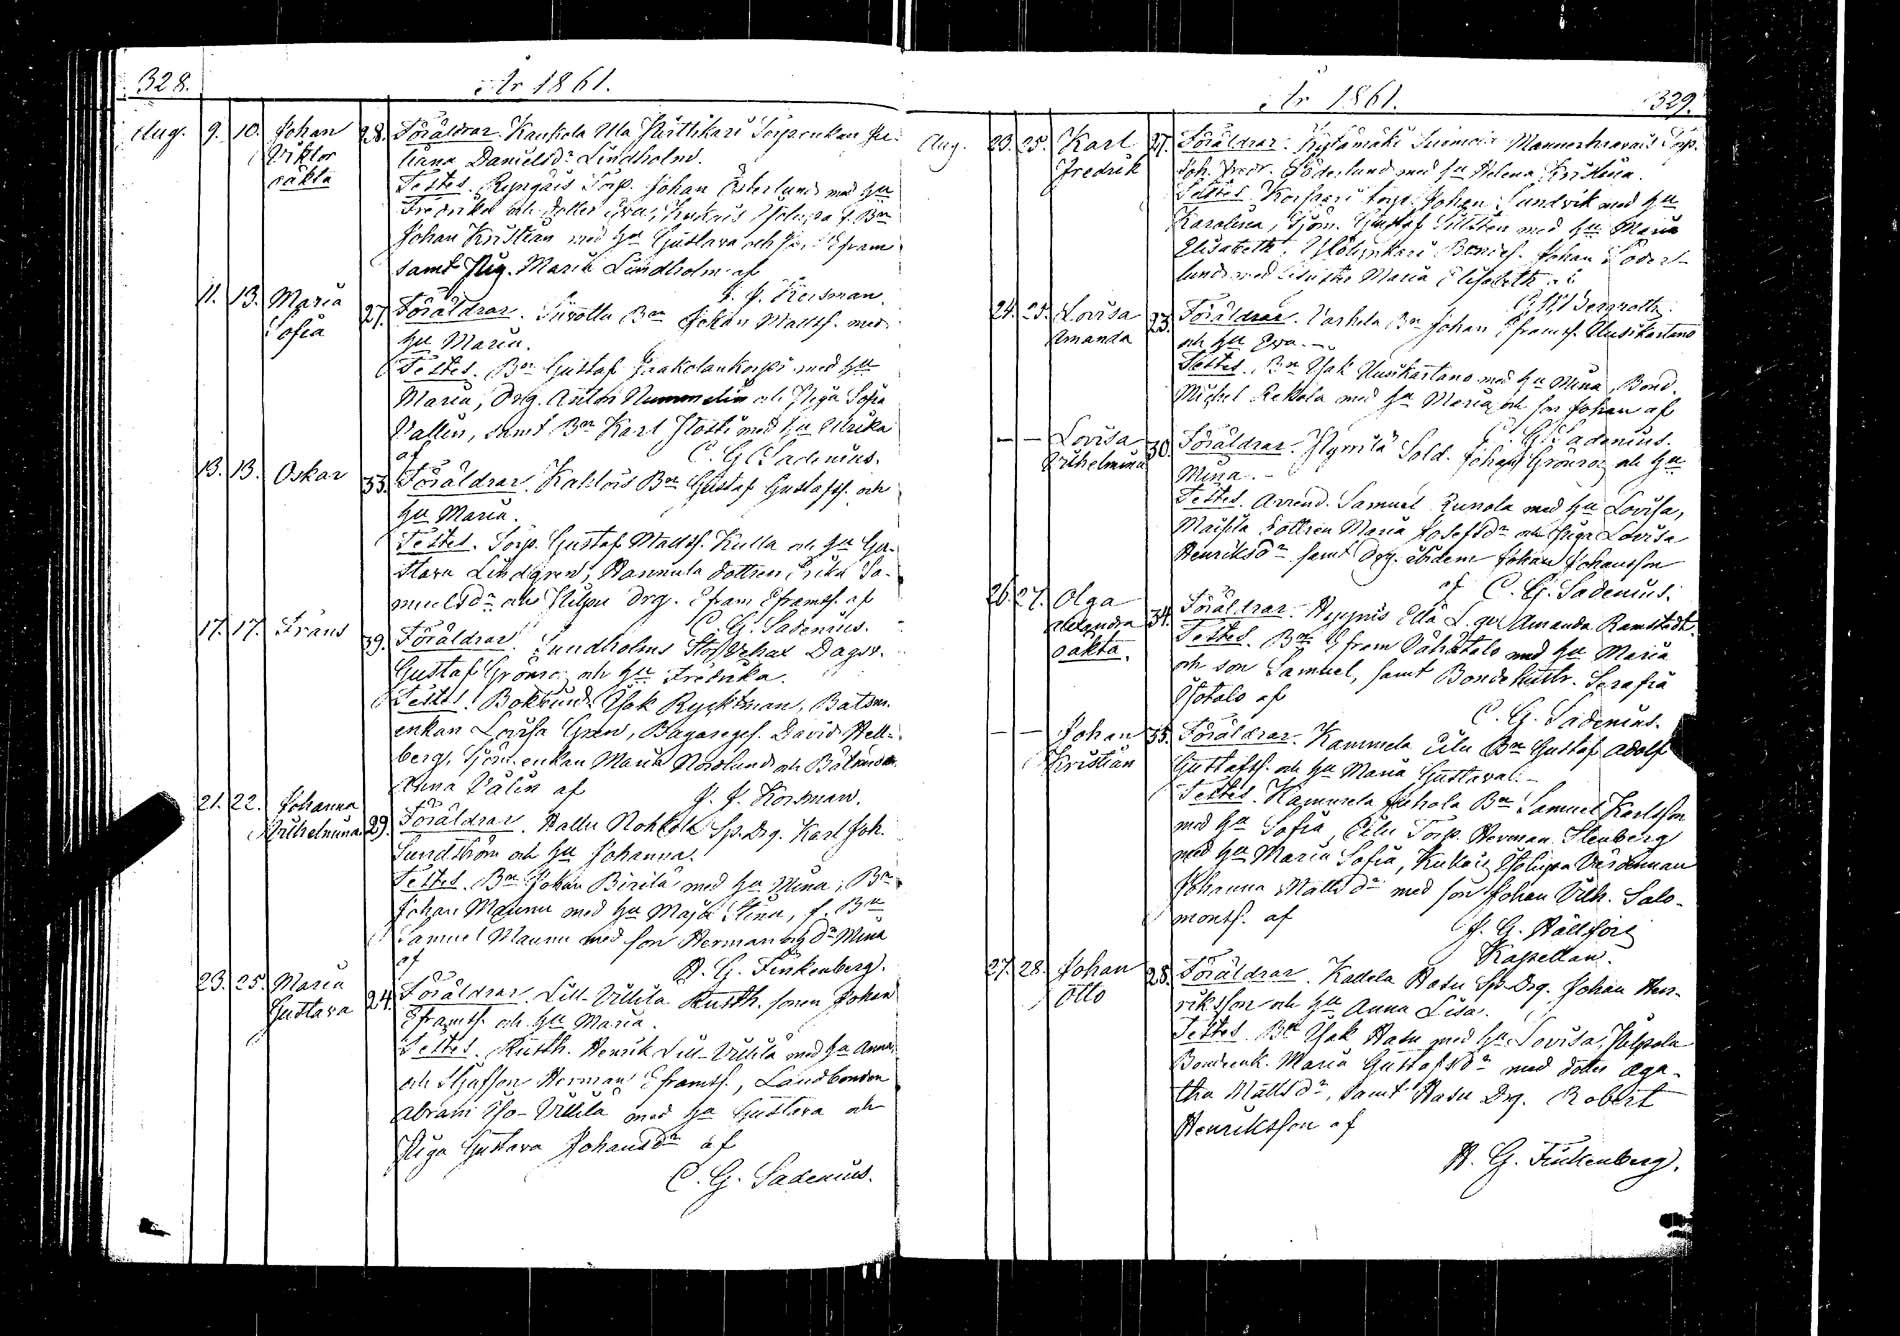 328.
År 1861.
Aug. 9. 10. Johan Viktor oäkta 28. Föräldrar. Kaukola Ula Torpenkan
Danielsdr Lindholm.
Testes. Torp. Johan Österlund med hu
Fredrika och dotter Eva, f. Bn
Johan Kristian med hu Gustava och Efraim
samt Pig. Maria Lindholm af
J. J. Korsman.
11. 13. Maria Sofia 27. Föräldrar. Bn Johan Matts. med
hu Maria.
Testes. Bn Gustaf Jaakolankorpi med hu
Maria, Drg. Anton Nummelin och Piga Sofia
Vallin, samt Bn Karl med hu Ulrika
af
C. G. Sadenius.
13. 13. Oskar 33. Föräldrar. Bn Gustaf Gustafs. och
hu Maria.
Testes. Torp. Gustaf Matts. Kulla och hu Gu-
stava Lindgren, Hannula dottren Erika Sa-
muelsdr och Drg. Efraim Eframs. af
C. G. Sadenius.
17. 17. Frans 39. Föräldrar. Sundholms Dagsv.
Gustaf Grönro och hu Fredrika.
Testes. Isak Rycktman, Båtsm.
enkan Lovisa Gren, Bagaregs. David Hell-
berg, Sjöm. enkan Maria Nordlund och
Anna Valin af
J. J. Korsman.
21. 22. Johanna Vilhelmina 29. Föräldrar. Hallu Nohkola Sp. Drg. Karl Joh.
Sundström och hu Johanna.
Testes. Bn Johan Birilä med hu Mina, Bn
Johan Maunu med hu Maja Stina, f. Bn
Samuel Maunu med son Herman och dr Mina
af
H. G. Finkenberg.
23. 25. Maria Gustava 24. Föräldrar. Lill-Villilä Rusth. sonen Johan
Eframs. och hu Maria.
Testes. Rusth. Henrik Lill-Villilä med hu Anna,
och Herman Eframs., Landbonden
Abram Iso-Villilä med hu Gustava och
Piga Gustava Johansdr af
C. G. Sadenius.
År 1861.
329.
Aug. 23. 25. Karl Fredrik 27. Föräldrar. Kylämäki Torp.
Joh. Fredr. Söderlund med hu Helena Kristina.
Testes. Korpaari torp. Johan Sundvik med hu
Karolina, Sjöm. Gustaf med hu Maria
Elisabeth, Johan Söder-
lund med hustru Maria Elisabeth af
24. 25. Lovisa Amanda 23. Föräldrar. Varhela Bn Johan Eframs. Uusikartano
och hu Eva.
Testes. Bn Isak Uusikartano med hu Mina, Bond.
Michel Rekola med hu Maria och son Johan af
C. G. Sadenius.
— — Lovisa Vilhelmina 30. Föräldrar. Sold. Johan Grönroo och hu
Mina.
Testes. Arrend. Samuel Runola med hu Lovisa,
dottren Maria Josefsdr och Piga Lovisa
Henriksdr samt Drg. ibidem Johan Johansson
af C. G. Sadenius.
26. 27. Olga Alexandra oäkta. 34. Föräldrar. Amanda Ramstedt.
Testes. Bn Efram Vähätalo med hu Maria
och son Samuel, samt Bondehustr. Serafia
Isotalo af
C. G. Sadenius.
— — Johan Kristian 35. Föräldrar. Kammela Eilu Bn Gustaf Adolf
Gustafs. och hu Maria Gustava.
Testes. Kammela Juhola Bn Samuel Karlsson
med hu Sofia, Eilu Torp. Herman Stenberg
med hu Maria Sofia,
Johanna Mattsdr med son Johan Vilh. Salo-
mons. af
J. G. Hällfors
Kapellan.
27. 28. Johan Otto 28. Föräldrar. Kadela Hasu Sp. Drg. Johan Hen-
riksson och hu Anna Lisa.
Testes. Bn Isak Hasu med hu Lovisa,
Bondenk. Maria Gustafsdr med dotter Aga-
tha Mattsdr, samt Hasu Drg. Robert
Henriksson af
H. G. Finkenberg.